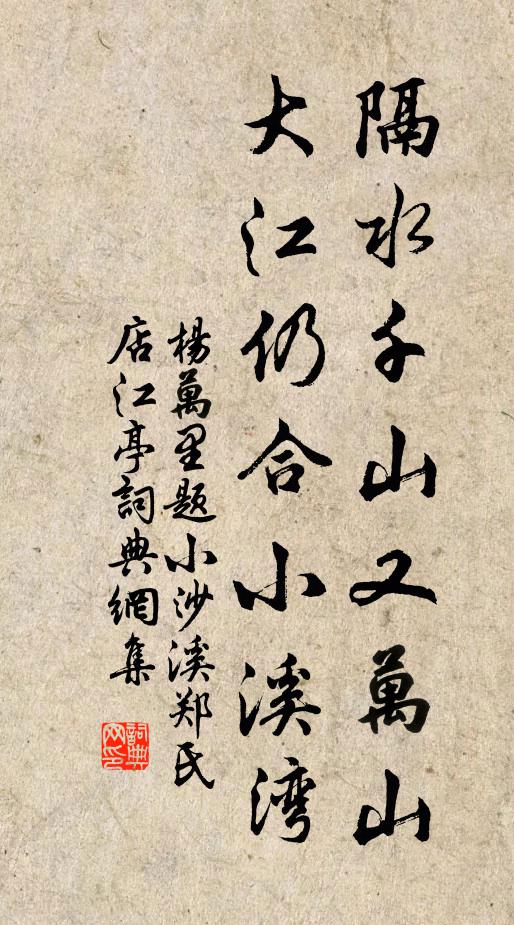 隔水千山又萬山
大江仍合小溪湾
楊萬里题小沙溪郑氏
店江亭詞典網集
詞典网印